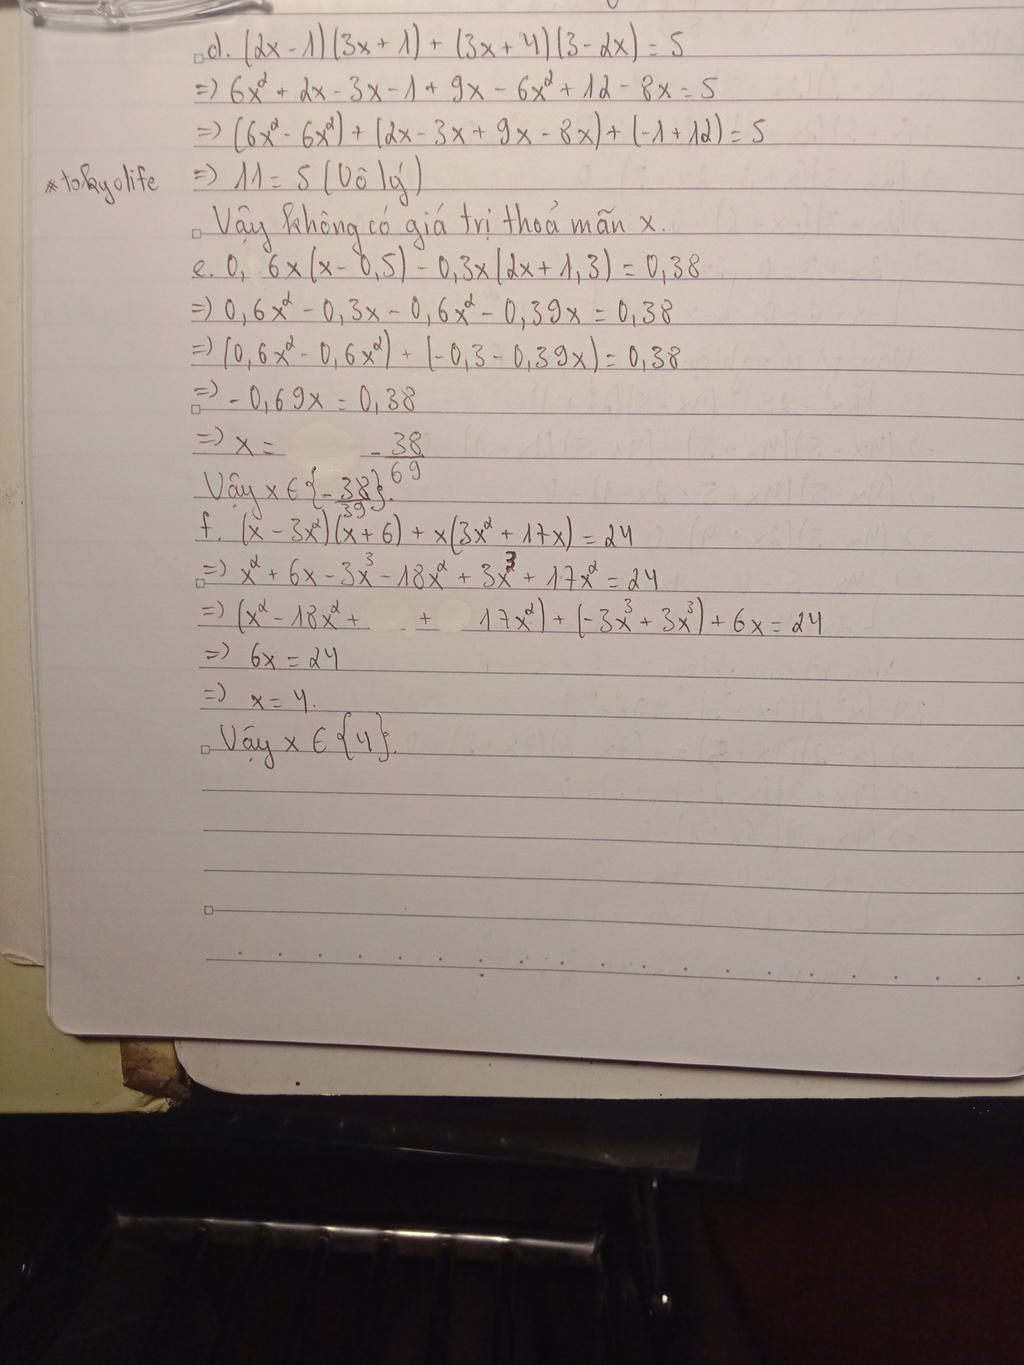 d. (2x - 1)(3x + 1) + (3x + 4)(3 - 2x) = 5
=) 6x² + 2x - 3x - 1 + 9x - 6x² + 12 - 8x = 5
=) (6x² - 6x²) + (2x - 3x + 9x - 8x) + (-1 + 12) = 5
*tokyolife =) 11 = 5 (Vô lý)
Vậy không có giá trị thoả mãn x.
e. 0, 6x(x - 0,5) - 0,3x(2x + 1,3) = 0,38
=) 0,6x² - 0,3x - 0,6x² - 0,39x = 0,38
=) (0,6x² - 0,6x²) + (-0,3 - 0,39x) = 0,38
=) - 0,69x = 0,38
=) x = - 38/69
Vậy x ∈ {- 38/39}.
f. (x - 3x²)(x + 6) + x(3x² + 17x) = 24
=) x² + 6x - 3x³ - 18x² + 3x³ + 17x² = 24
=) (x² - 18x² + + 17x²) + (-3x³ + 3x³) + 6x = 24
=) 6x = 24
=) x = 4.
Vậy x ∈ {4}.